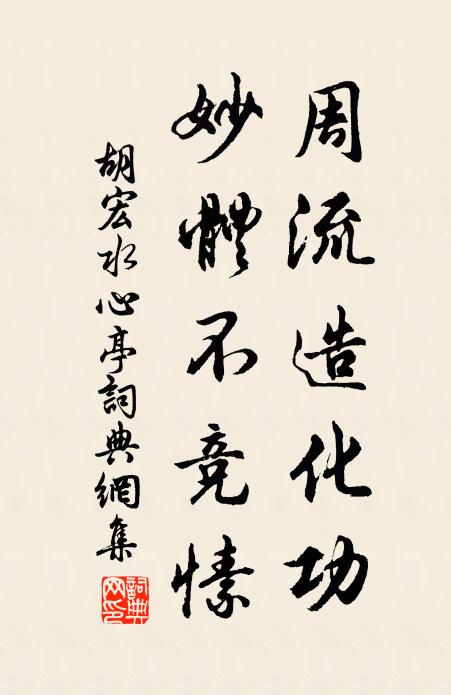 周流造化功
妙體不竞愫
胡宏水心亭詞典網集
詞典网印